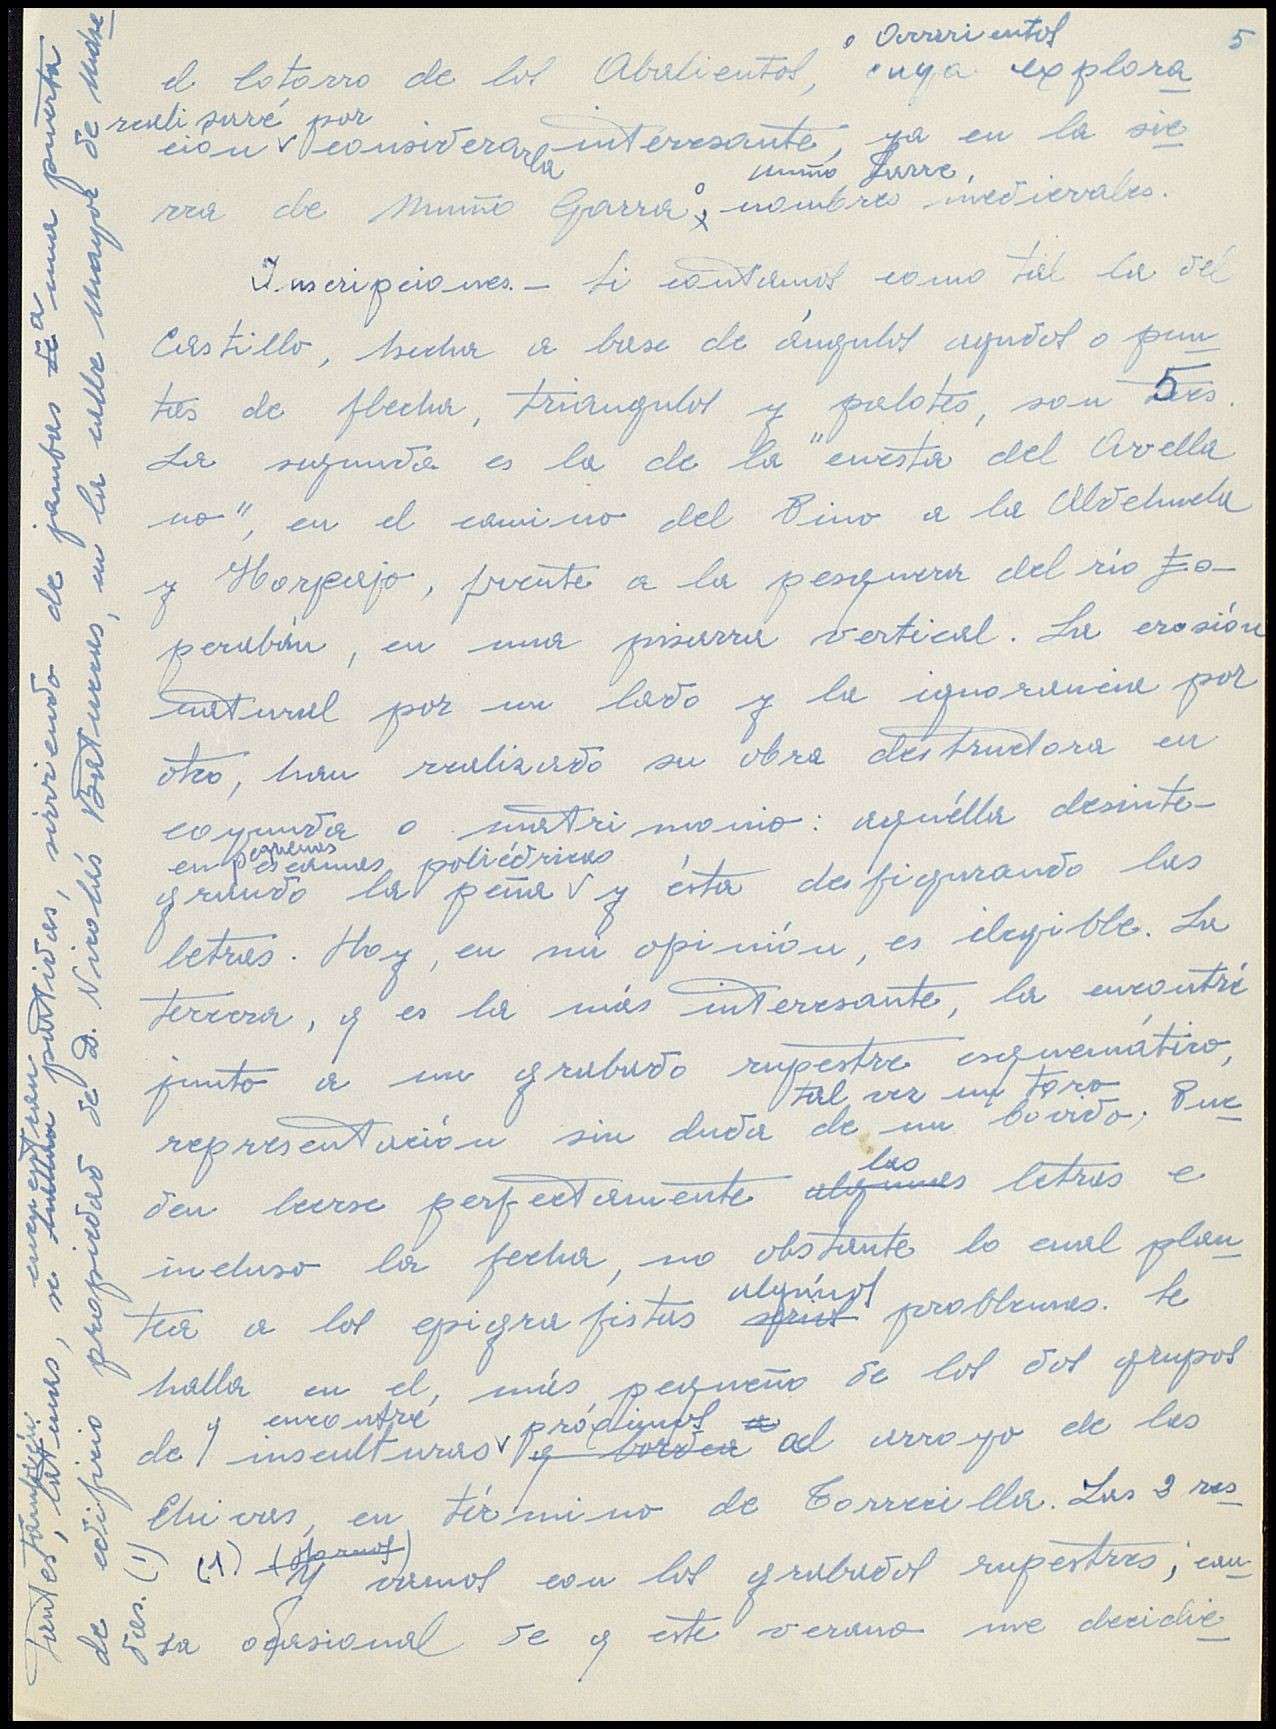 5
o Arrarientos
el Cotarro de los Abalientos, cuya explora
realisaré por
cion v considerarla interesante, ya en la sie
Muño Jarre
rra de Muño Garra, nombres medievales.
Inscripciones.- Si contamos como tal la del
Castillo, hecha a base de ángulos agudos o pun
tas de flecha, triangulos y palotes, son 5.
La segunda es la de la "cuesta del Avella
no", en el camino del Pino a la Aldehuela
y Horcajo, frente a la pesquera del río Za-
perabán, en una pisarra vertical. La erosión
natural por un lado y la ignorancia por
otro, han realizado su obra destructora en
coyunda o matrimonio: aquélla desinte-
en pequeñas escamas poliédricas
grando la peña v y ésta desfigurando las
letras. Hoy, en mi opinión, es ilegible. La
tercera, y es la más interesante, la encontré
junto a un grabado rupestre esquemático,
tal vez un toro
representación sin duda de un bovido; Pue
las
den leerse perfectamente algunas letras e
incluso la fecha, no obstante lo cual plan
algúnos
tea a los epigrafistas problemas. Se
halla en el, más pequeño de los dos grupos
encontré próximos
de insculturas v q al arroyo de las
Chivas, en término de Torrecilla. Las 2 res
(1) (
Y vamos con los grabados rupestres; cau
sa ocasional de q este verano me decidie
también encuentran
tantes, latinas, se partidas, sirviendo de jambas a una puerta
de edificio propiedad de D. Nicolás Batuecas, en la calle Mayor de Madre
das. (1)